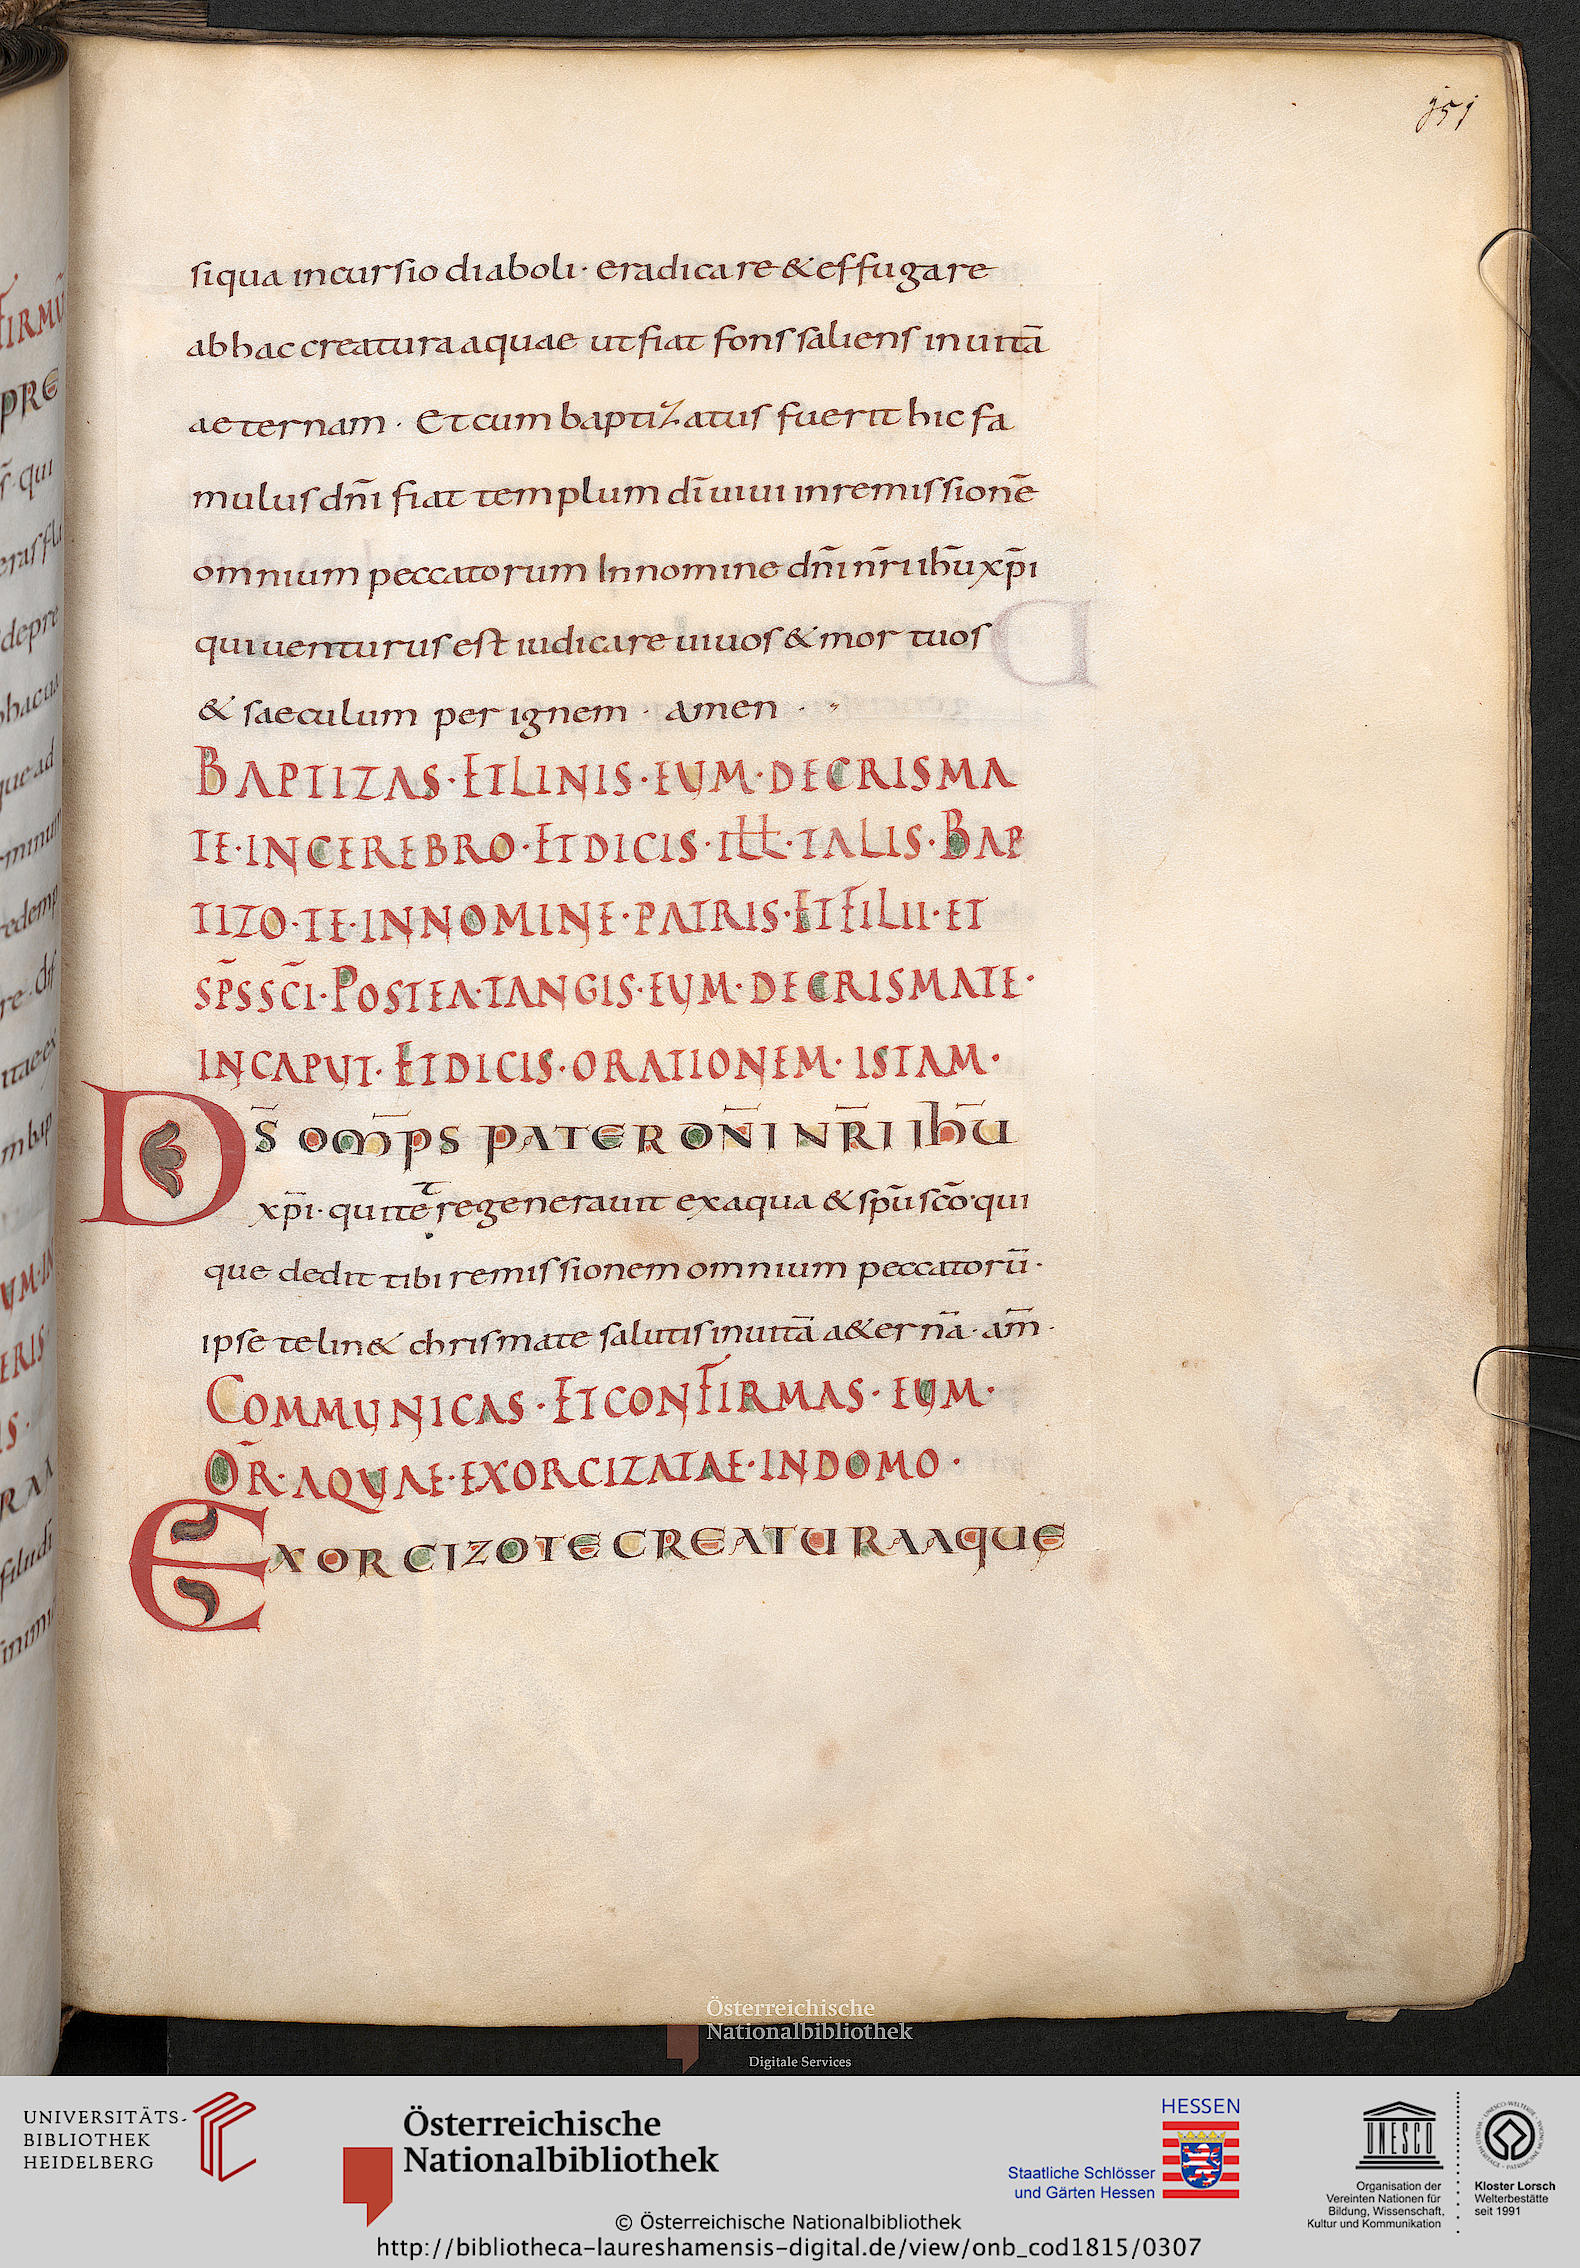 151
siqua incursio diaboli · eradicare & effugare
ab hac creatura aquae ut fiat fons saliens in uitā
aeternam · Et cum baptizatus fuerit hic fa
mulus dn̄i fiat templum dī uiui in remissionē
omnium peccatorum In nomine dn̄i nr̄i ihū xp̄i
qui uenturus est iudicare uiuos & mortuos
& saeculum per ignem · amen ·
BAPTIZAS · ET LINIS · EUM · DE CRISMA
TE · IN CEREBRO · ET DICIS · ILL · TALIS · BAP
TIZO · TE · IN NOMINE · PATRIS · ET FILII · ET
SP̄S SC̄I · POSTEA · TANGIS · EUM · DE CRISMATE ·
IN CAPUT · ET DICIS · ORATIONEM · ISTAM ·
DS̄ OMP̄S PATER DN̄I NR̄I IHŪ
xp̄i · qui te regenerauit ex aqua & spū scō · qui
que dedit tibi remissionem omnium peccatorū ·
ipse te lin& chrismate salutis in uitā a&ernā · am̄ ·
COMMUNICAS · ET CONFIRMAS · EUM ·
OR̄ · AQUAE · EXORCIZATAE · IN DOMO ·
EXORCIZO TE CREATURA AQUE
Österreichische
Nationalbibliothek
Digitale Services
UNIVERSITÄTS-
BIBLIOTHEK
HEIDELBERG
Österreichische
Nationalbibliothek
HESSEN
Staatliche Schlösser
und Gärten Hessen
UNESCO
Organisation der
Vereinten Nationen für
Bildung, Wissenschaft,
Kultur und Kommunikation
Kloster Lorsch
Welterbestätte
seit 1991
© Österreichische Nationalbibliothek
http://bibliotheca-laureshamensis-digital.de/view/onb_cod1815/0307